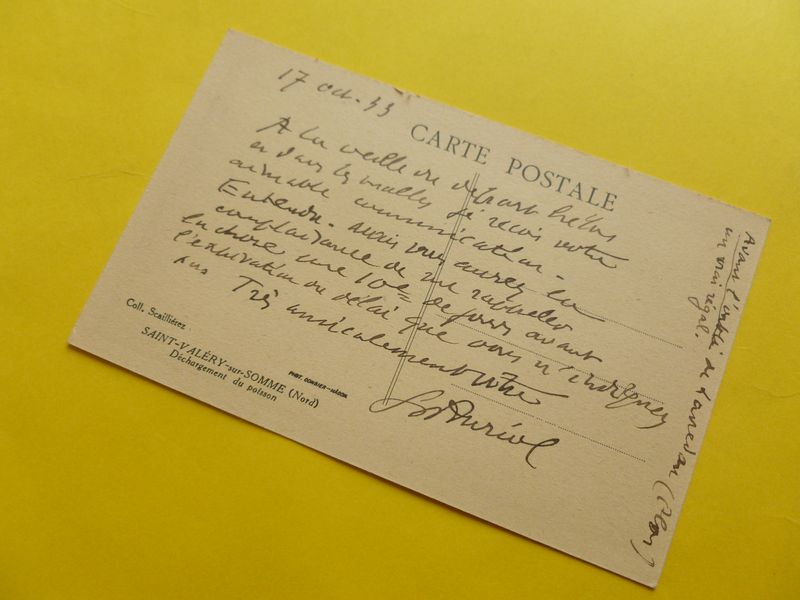 17 oct. 33
CARTE POSTALE
A la veille du départ hélas
et dans les malles je reçois votre
aimable communication -
Entendu. mais vous aurez la
complaisance de me rappeler
la chose une 10e de jours avant
l'expiration du délai que vous m'indiquez
pas
Très amicalement votre
Coll. Scailliérez
SAINT-VALÉRY-sur-SOMME (Nord)
Déchargement du poisson
PHOT. COMBIER-MÂCON
Avant l'oubli de
un vrai régal.
(Plon)